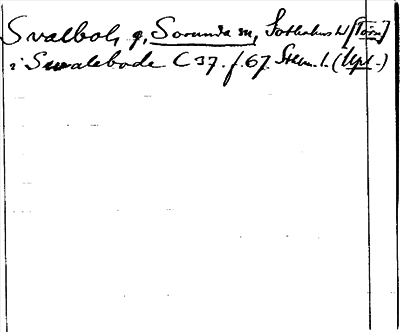 Svalbol, g, Sorunda sn, Sotholms hd [Törn]
i Swalebode C 37. f. 67. Sthm. l. (Upl.)